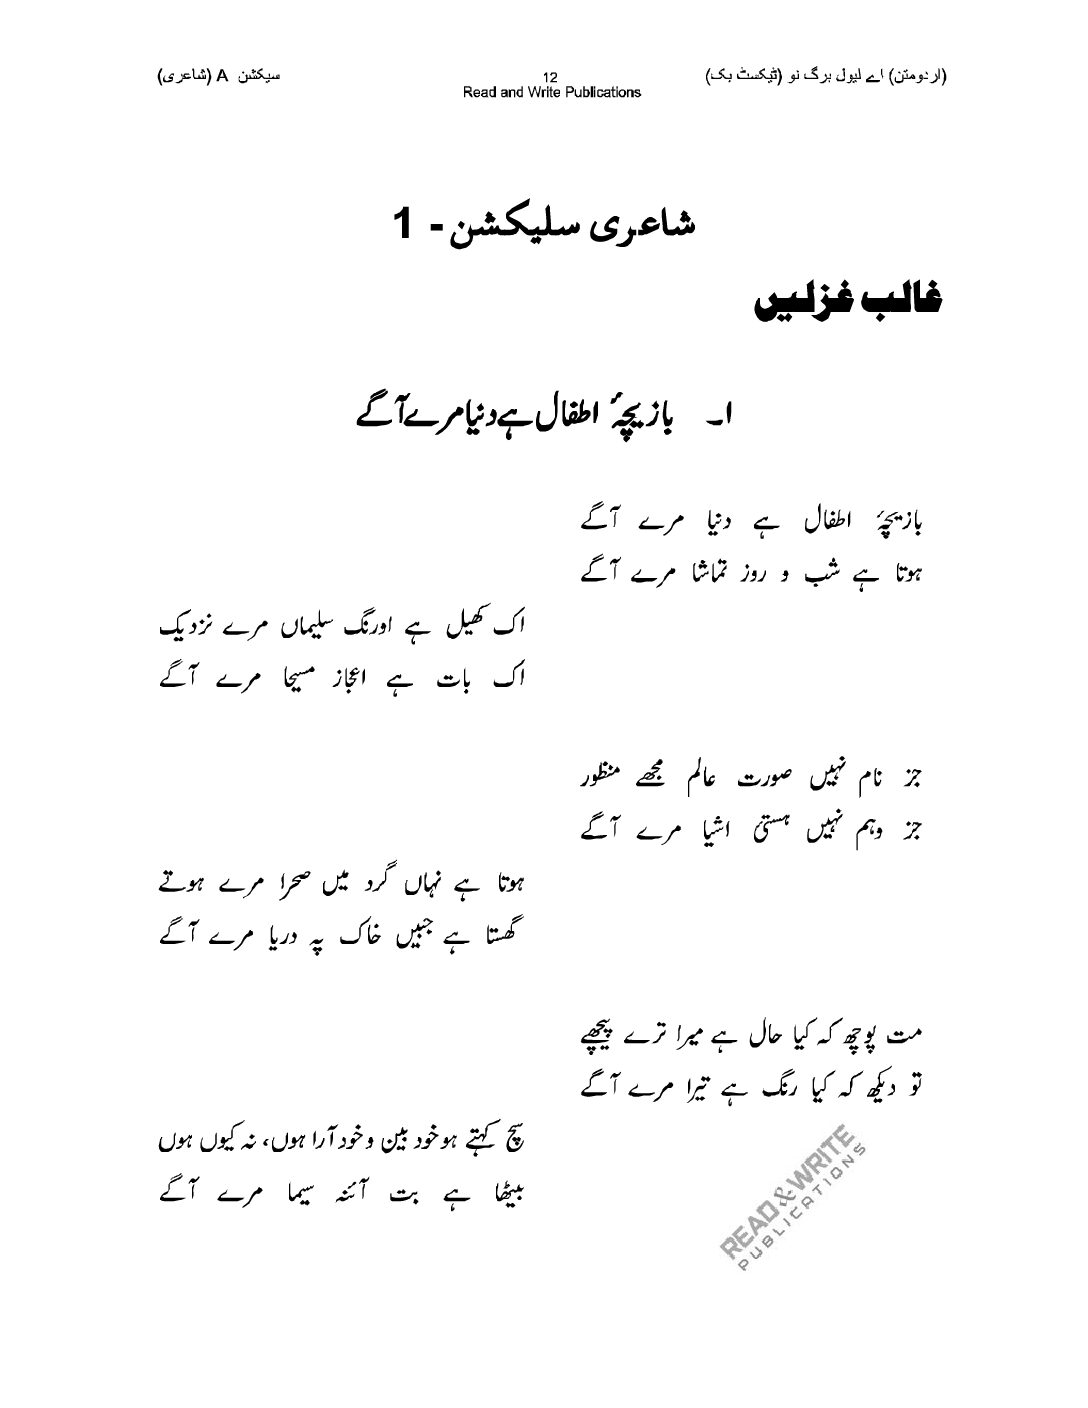 (اردومتن) اے لیول برگ نو (ٹیکسٹ بک)
12
سیکشن A (شاعری)
Read and Write Publications
شاعری سلیکشن - 1
غالب غزلیں
۱۔ بازیچۂ اطفال ہے دنیا مرے آگے
بازیچۂ اطفال ہے دنیا مرے آگے
ہوتا ہے شب و روز تماشا مرے آگے
اک کھیل ہے اورنگ سلیماں مرے نزدیک
اک بات ہے اعجاز مسیحا مرے آگے
جز نام نہیں صورت عالم مجھے منظور
جز وہم نہیں ہستیٔ اشیا مرے آگے
ہوتا ہے نہاں گرد میں صحرا مرے ہوتے
گھستا ہے جبیں خاک پہ دریا مرے آگے
مت پوچھ کہ کیا حال ہے میرا ترے پیچھے
تو دیکھ کہ کیا رنگ ہے تیرا مرے آگے
سچ کہتے ہو خود بین و خود آرا ہوں، نہ کیوں ہوں
بیٹھا ہے بت آئنہ سیما مرے آگے
READ & WRITE
PUBLICATIONS